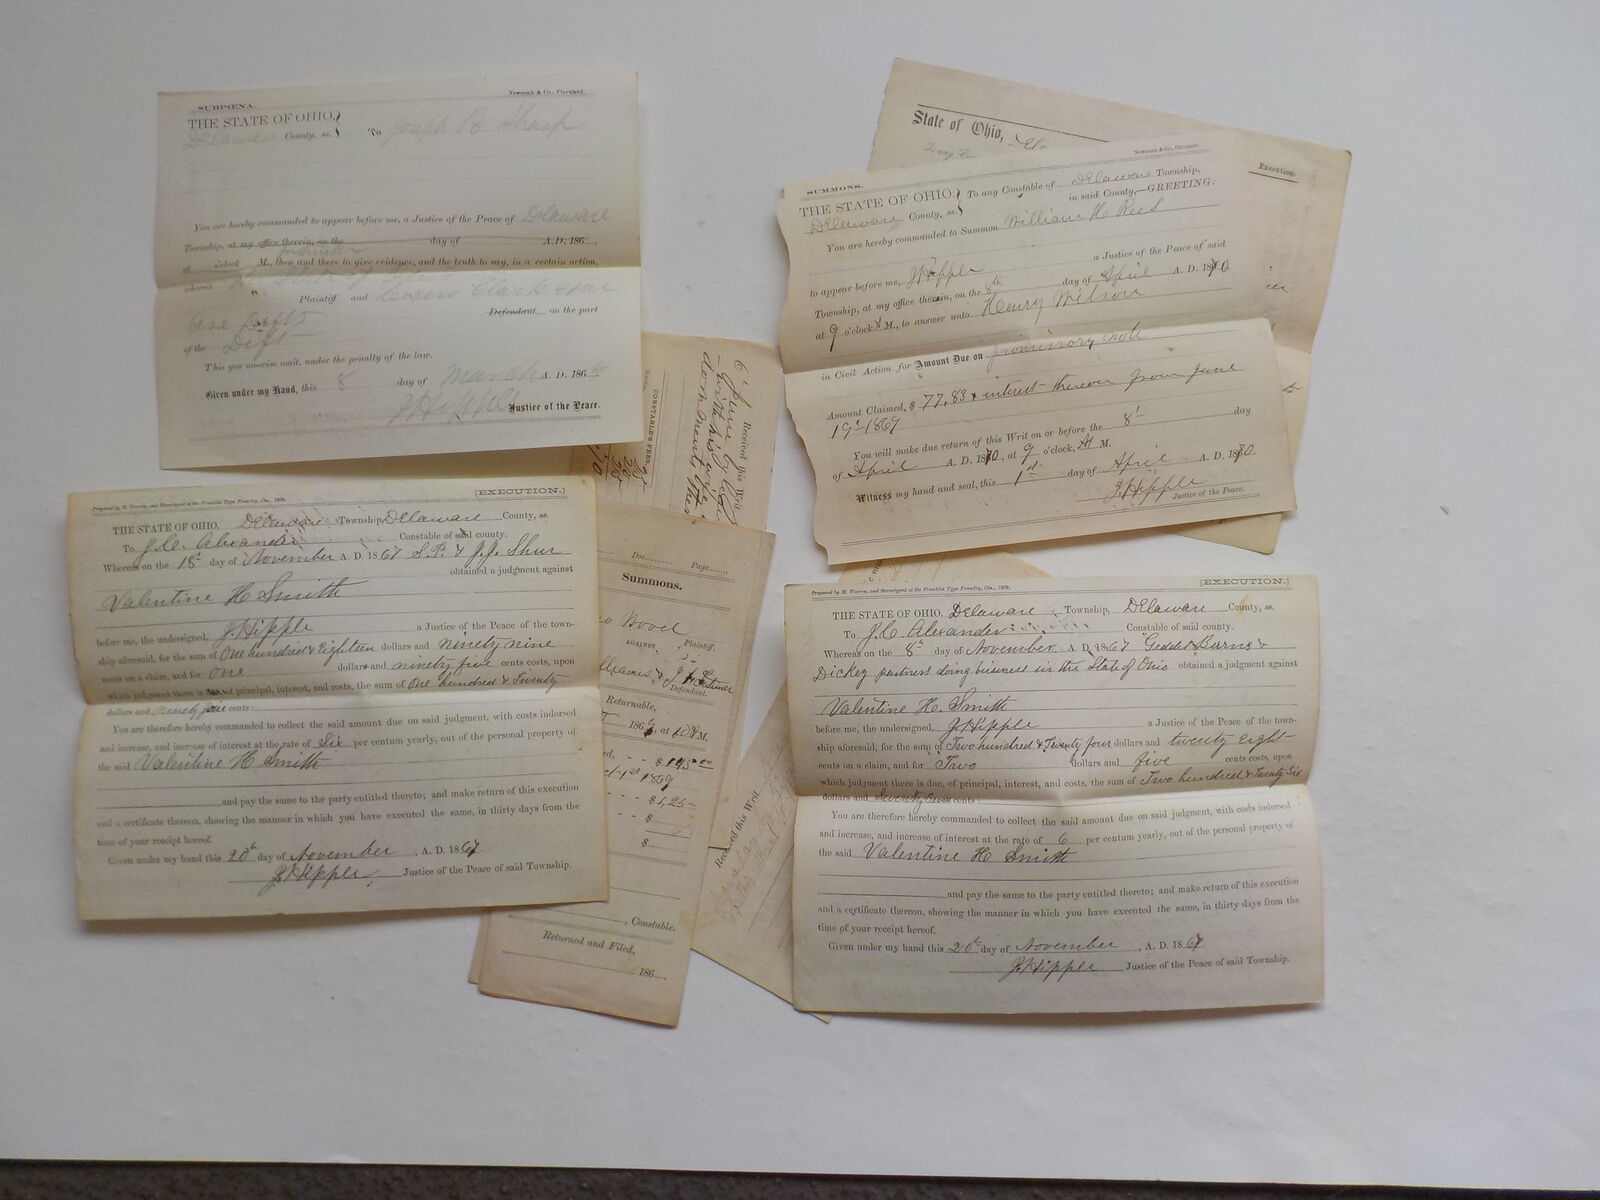 SUBPŒNA.
Newcomb & Co., Cleveland.
THE STATE OF OHIO,
Delaware County, ss. To Joseph B. Sharp
You are hereby commanded to appear before me, a Justice of the Peace of Delaware
Township, at my office therein, on the day of A.D. 186 ,
at o'clock M., then and there to give evidence, and the truth to say, in a certain action,
wherein
Plaintiff and Clark
are Defts Defendant on the part
of the Deft
This you no-wise omit, under the penalty of the law.
Given under my Hand, this 8 day of March A. D. 1869
J Hipple Justice of the Peace.
State of Ohio,
Execution.
SUMMONS.
Newcomb & Co., Cleveland.
THE STATE OF OHIO, To any Constable of Delaware Township,
Delaware County, ss. in said County,—GREETING:
You are hereby commanded to Summon William H. Rees
to appear before me, J Hipple a Justice of the Peace of said
Township, at my office therein, on the 8th day of April A. D. 1870.
at 9 o'clock A M., to answer unto Henry Wilson
in Civil Action for Amount Due on promissory note
Amount Claimed, $ 77,83 & interest thereon from June
19th 1867
You will make due return of this Writ on or before the 8th day
of April A. D. 1870, at 9 o'clock, A M.
Witness my hand and seal, this 1st day of April A. D. 1870.
J. Hipple
Justice of the Peace.
Received this Writ
CONSTABLE'S FEES
[EXECUTION.]
Prepared by M. Warren, and Stereotyped at the Franklin Type Foundry, Cin., 1859.
THE STATE OF OHIO, Delaware Township, Delaware County, ss.
To J. C. Alexander Constable of said county.
Whereas on the 18th day of November A. D. 1867 S. P. & J. J. Shur
obtained a judgment against
Valentine H Smith
before me, the undersigned, J. Hipple a Justice of the Peace of the town-
ship aforesaid, for the sum of One hundred & Eighteen dollars and ninety nine
cents on a claim, and for One dollars and ninety five cents costs, upon
which judgment there is due of principal, interest, and costs, the sum of One hundred & Twenty
dollars and ninety four cents:
You are therefore hereby commanded to collect the said amount due on said judgment, with costs indorsed
and increase, and increase of interest at the rate of Six per centum yearly, out of the personal property of
the said Valentine H Smith
and pay the same to the party entitled thereto; and make return of this execution
and a certificate thereon, showing the manner in which you have executed the same, in thirty days from the
time of your receipt hereof.
Given under my hand this 20th day of November, A. D. 1867
J. Hipple, Justice of the Peace of said Township.
Doc......... Page........
Summons.
Wood
Plaintiff,
AGAINST
Defendant.
Returnable,
1869, at 10 A M.
$195.00
1st 1869
$1,25
$
$
, Constable.
Returned and Filed,
186 .
Received this Writ
[EXECUTION.]
Prepared by M. Warren, and Stereotyped at the Franklin Type Foundry, Cin., 1859.
THE STATE OF OHIO, Delaware Township, Delaware County, ss.
To J. C. Alexander Constable of said county.
Whereas on the 8th day of November A. D. 1867 Geddes Burns &
Dickey partners doing business in the State of Ohio obtained a judgment against
Valentine H. Smith
before me, the undersigned, J. Hipple a Justice of the Peace of the town-
ship aforesaid, for the sum of Two hundred & Twenty four dollars and twenty Eight
cents on a claim, and for Two dollars and five cents costs, upon
which judgment there is due, of principal, interest, and costs, the sum of Two hundred & Twenty Six
dollars and Seventy Seven cents:
You are therefore hereby commanded to collect the said amount due on said judgment, with costs indorsed
and increase, and increase of interest at the rate of 6 per centum yearly, out of the personal property of
the said Valentine H Smith
and pay the same to the party entitled thereto; and make return of this execution
and a certificate thereon, showing the manner in which you have executed the same, in thirty days from the
time of your receipt hereof.
Given under my hand this 20th day of November, A. D. 1867
J. Hipple Justice of the Peace of said Township.